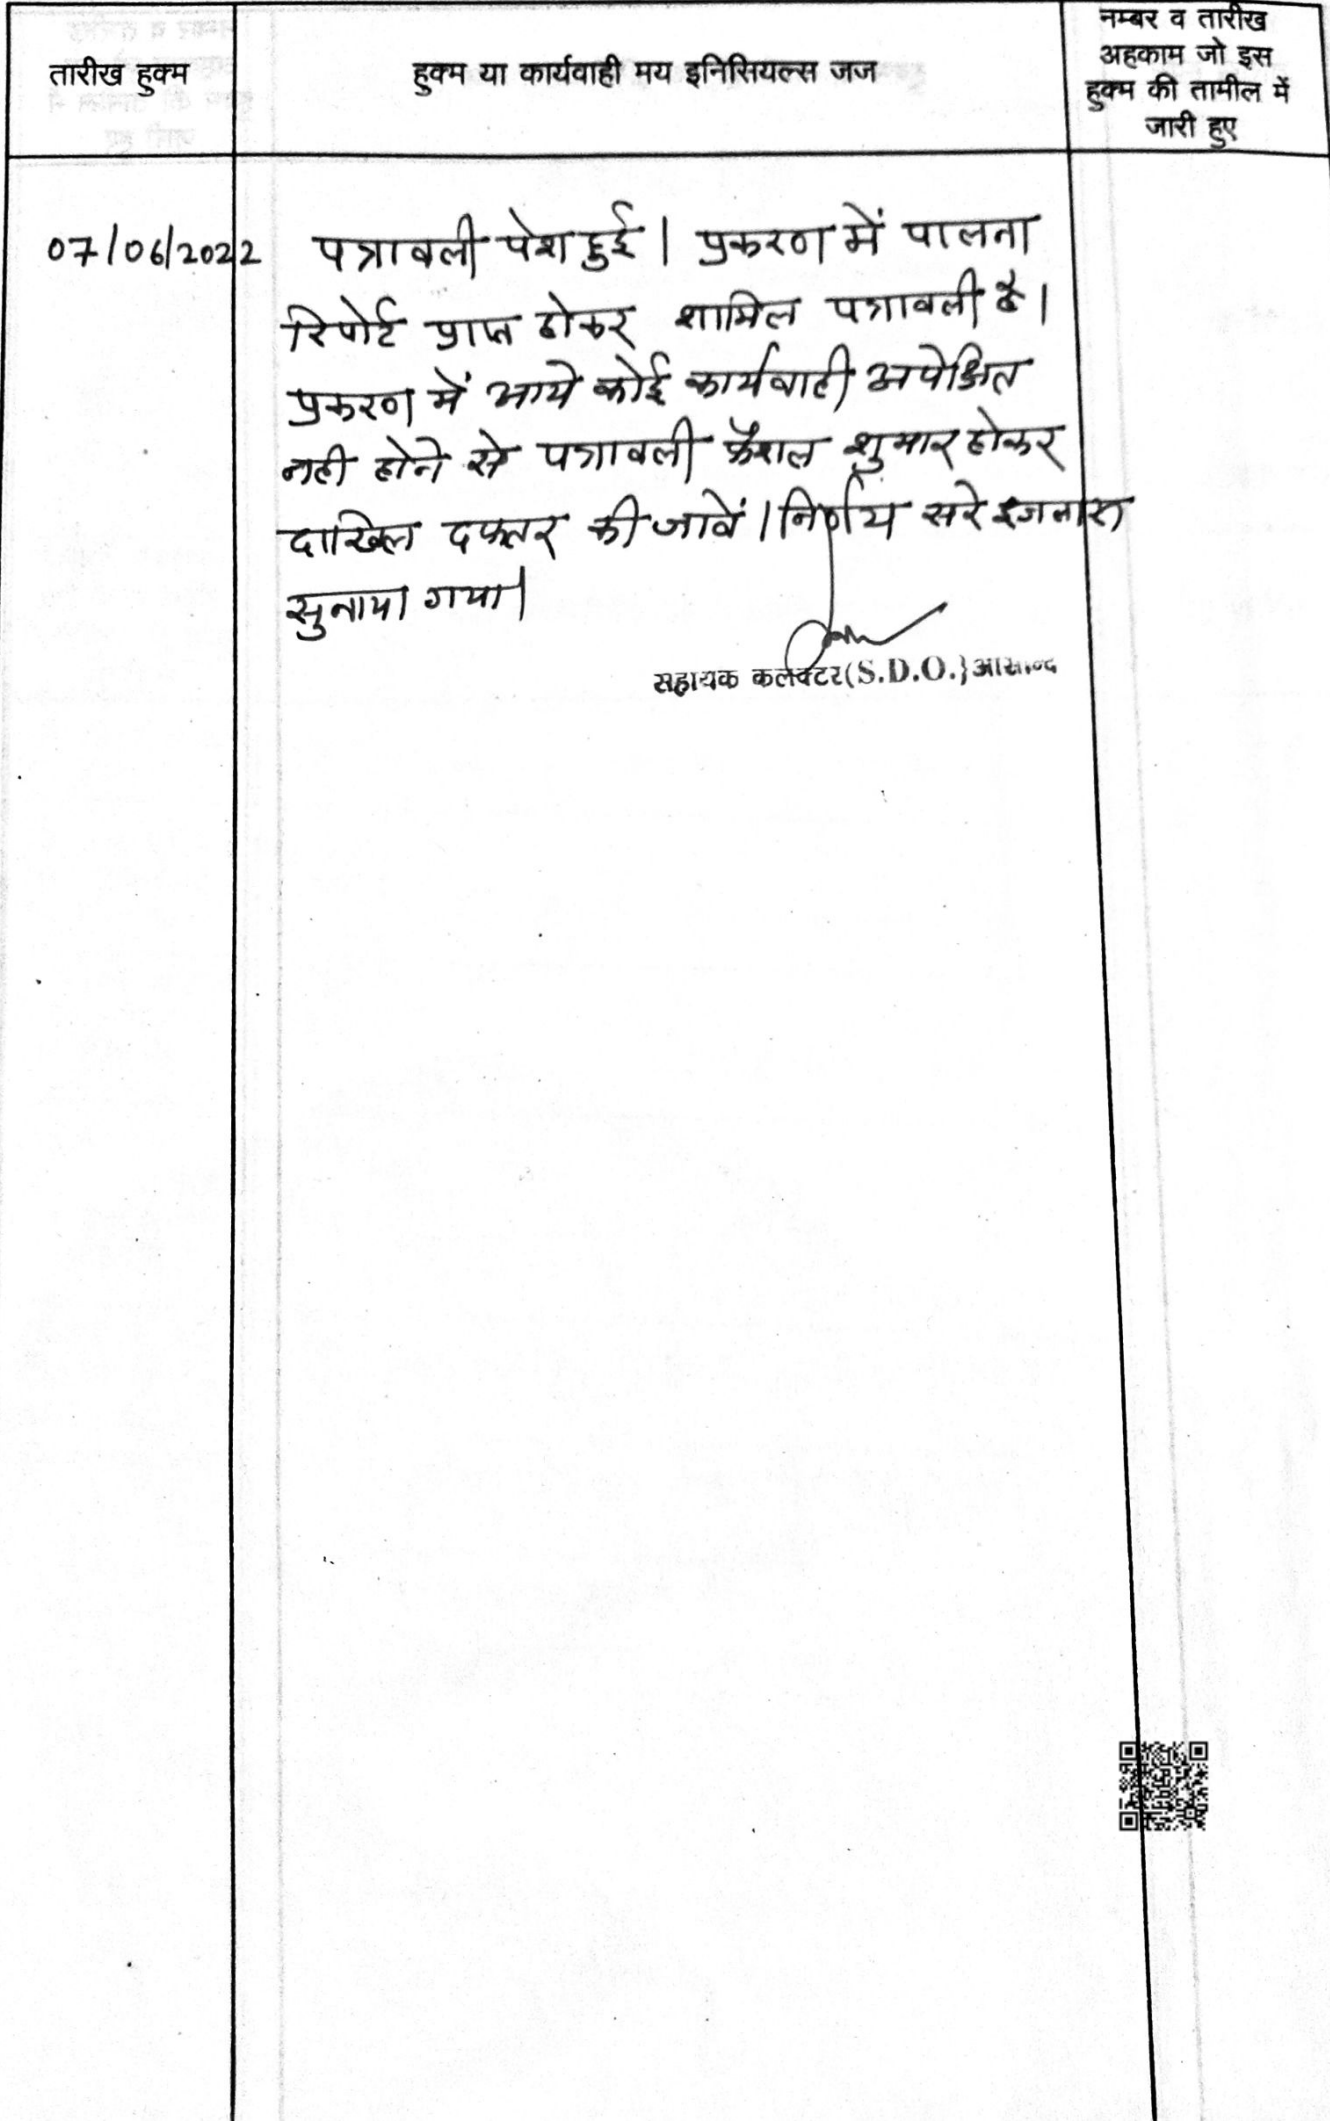 तारीख हुक्म
हुक्म या कार्यवाही मय इनिसियल्स जज
नम्बर व तारीख
अहकाम जो इस
हुक्म की तामील में
जारी हुए
07/06/2022 पत्रावली पेश हुई। प्रकरण में पालना
रिपोर्ट प्राप्त होकर शामिल पत्रावली है।
प्रकरण में आगे कोई कार्यवाही अपेक्षित
नही होने से पत्रावली फैशल शुमार होकर
दाखिल दफ्तर की जावें। निर्णय सरे इजलास
सुनाया गया।
सहायक कलेक्टर (S.D.O.) आसीन्द